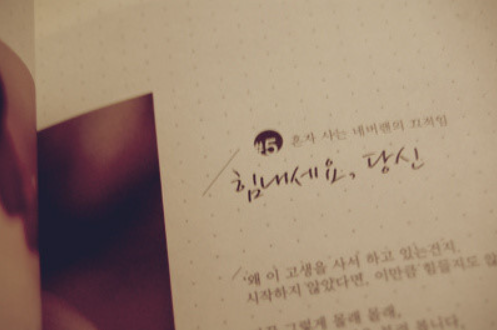 #5 혼자 사는 네버랜의 끄적임
힘내세요, 당신
왜 이 고생을 사서 하고 있는건지.
시작하지 않았다면, 이만큼 힘들지도 않
그렇게 몰래 몰래,